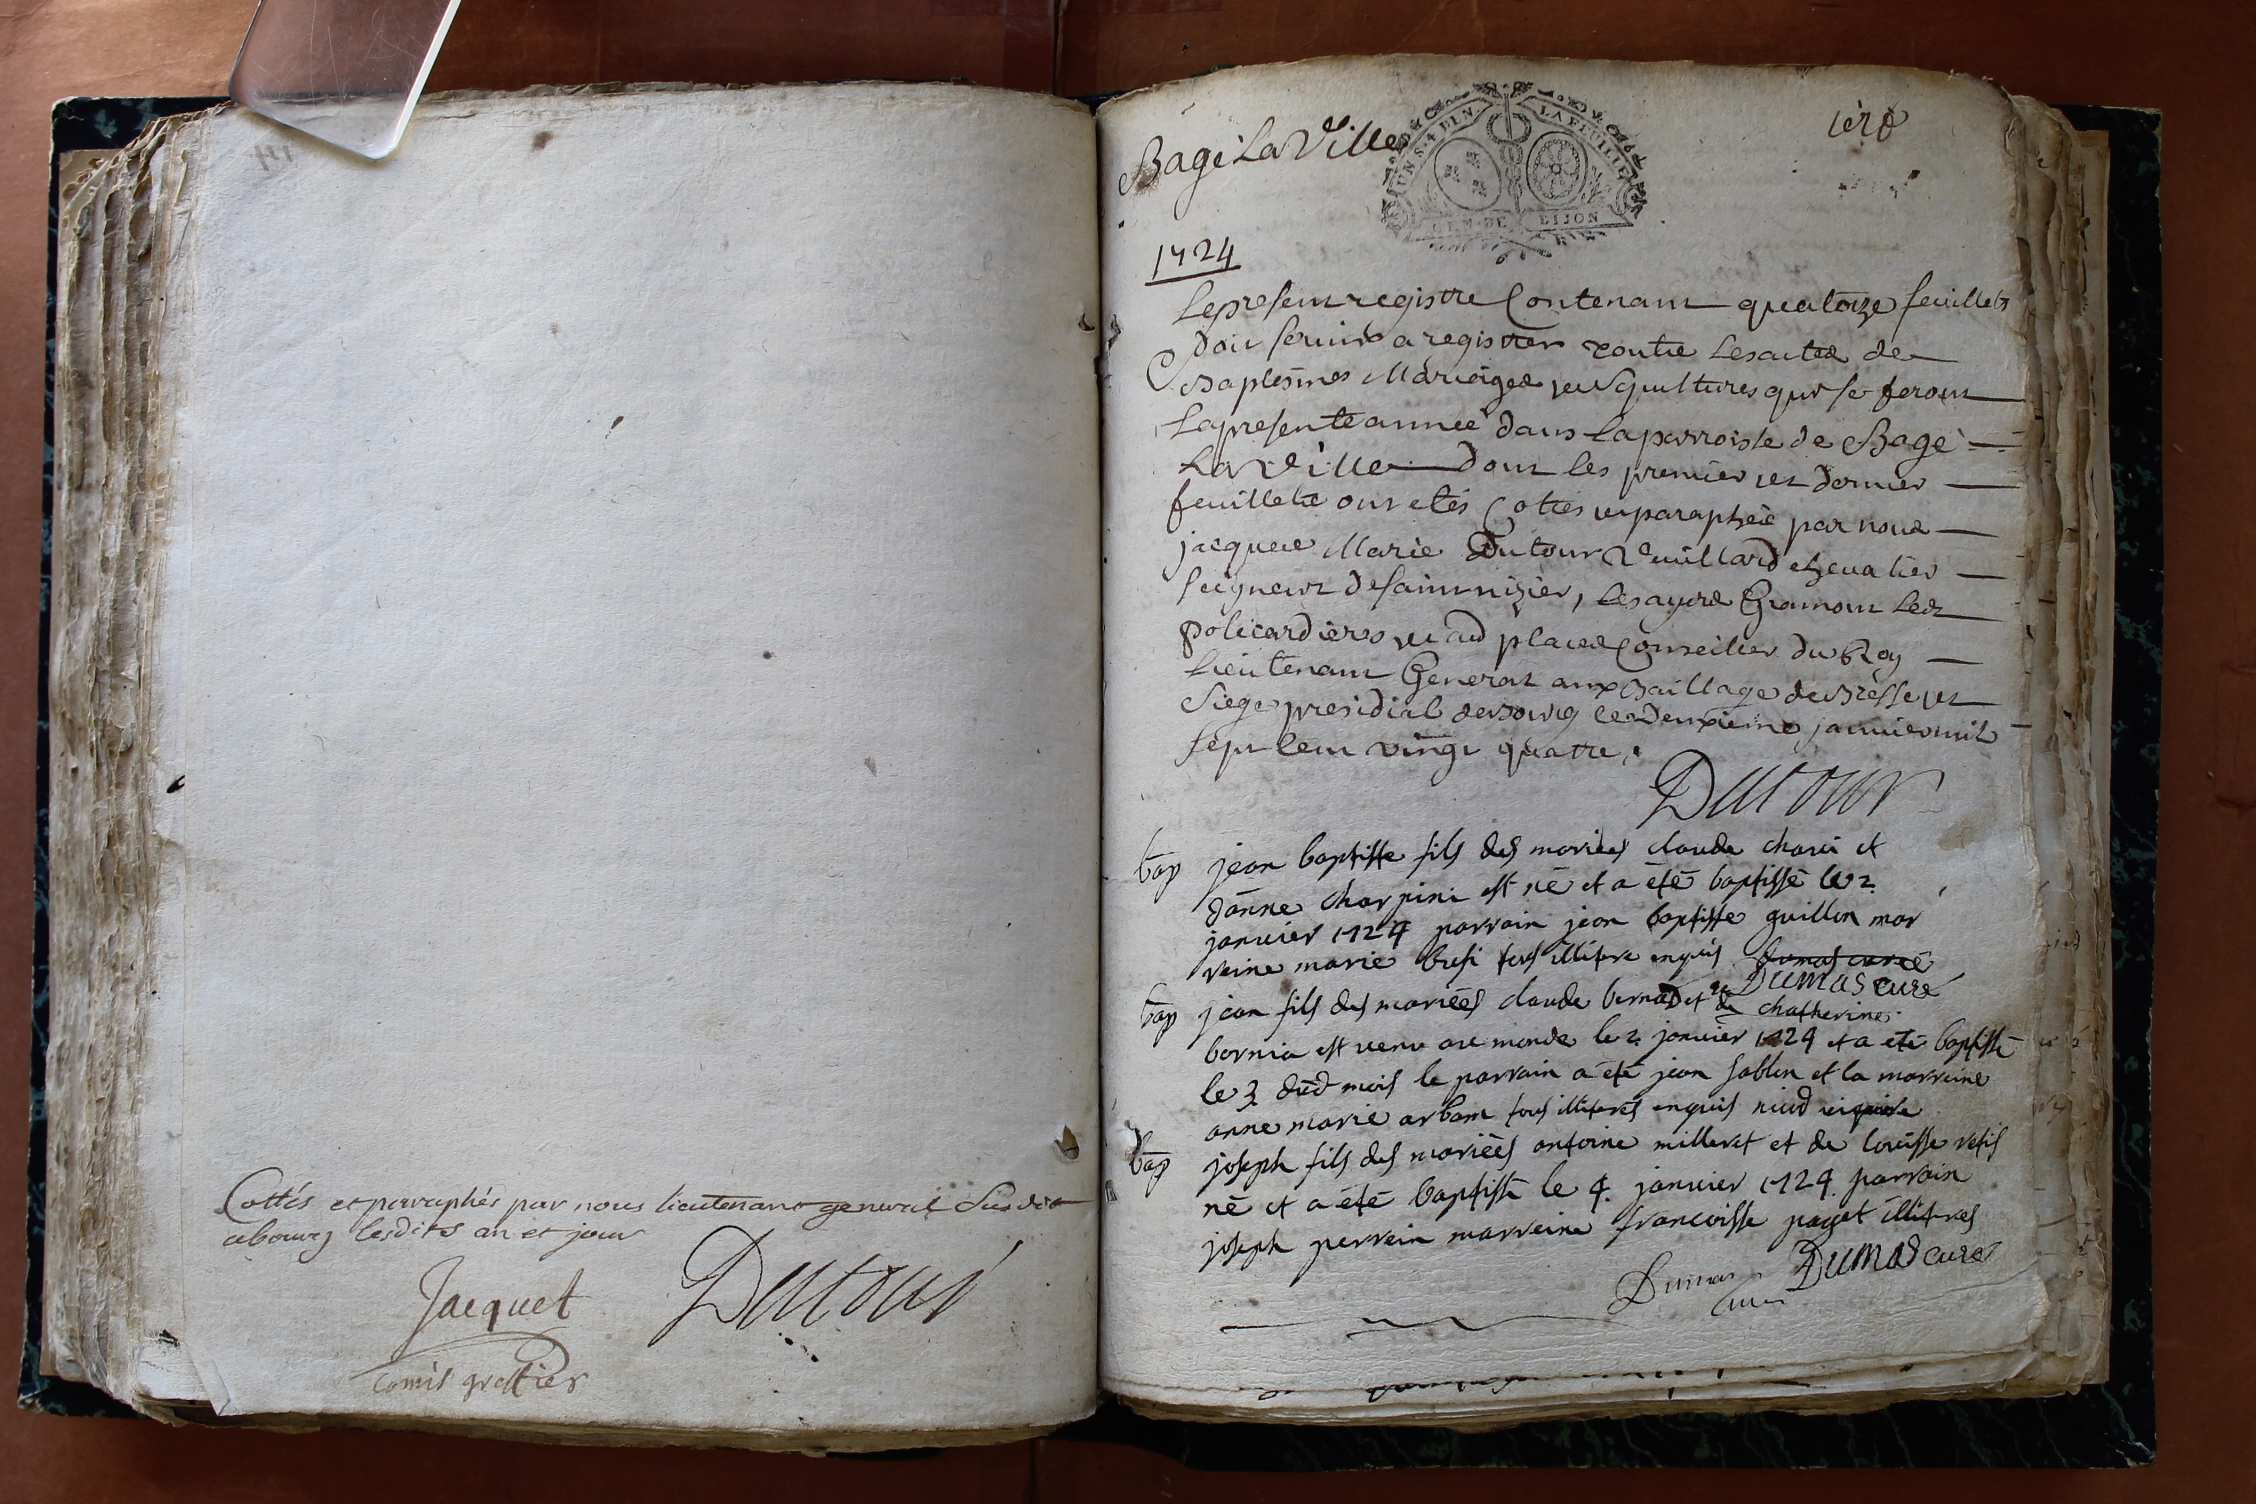 Cottés et paraphés par nous lieutenant general susdit
abourg lesdits an et jour
Jacquet
Dutour
comis greffier
Bagé La Ville
HUN S. 4 DEN. LA FEUILLE
GEN. DE DIJON
1ere
1724
Le present registre Contenant quatorze feuillets
Doit servir a registrer toutte Les actes de
Baptesmes Mariages et Sepultures qui se feront
La presente année dans La parroisse de Bagé
La Ville Dont les premier et dernier
feuillets ont étés Cottés et paraphés par nous
jacques Marie Dutour Vuillard chevalier
seigneur de saint nizier, Gramont Les
Policardieres et au places Conseiller du Roy
Lieutenant General au Bailliage de Bresse et
Siege presidial de Bourg le deuxieme janvier mil
sept Cent vingt quatre.
Dutour
bap jean baptiste fils des mariées claude et
danne est né et a été baptissé le 2
janvier 1724 parrain jean baptiste guillin mar
reine marie illitere enquis Dumas curé
Dumas curé
bap jean fils des mariéés claude bernad et de chatherine
bornia est venu au monde le 2 janvier 1724 et a eté baptissé
le 3 dud mois le parrain a été jean sablon et la marreine
anne marie tous illiterés enquis
bap joseph fils des mariéés antoine milleret et de louisse
né et a été baptissé le 4 janvier 1724 parrain
joseph perrein marreine francoisse paget illiterés
Dumas curé Dumas curé